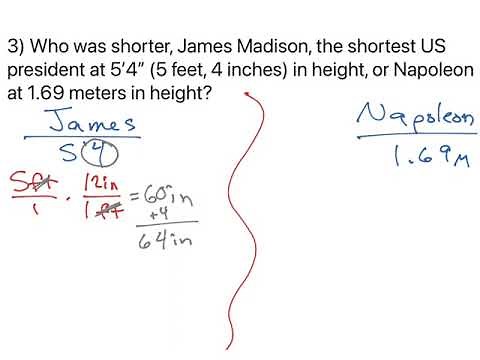 3) Who was shorter, James Madison, the shortest US
president at 5’4” (5 feet, 4 inches) in height, or Napoleon
at 1.69 meters in height?
James
5 4
Napoleon
1.69 M
5ft/1 · 12in/1ft = 60in
+4
64in